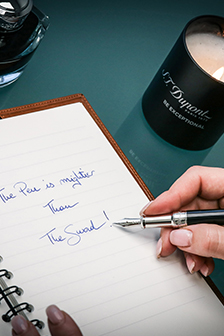 S.T. Dupont
PARIS 1872
BE EXCEPTIONAL
The Pen is mightier
Than
The Sword!